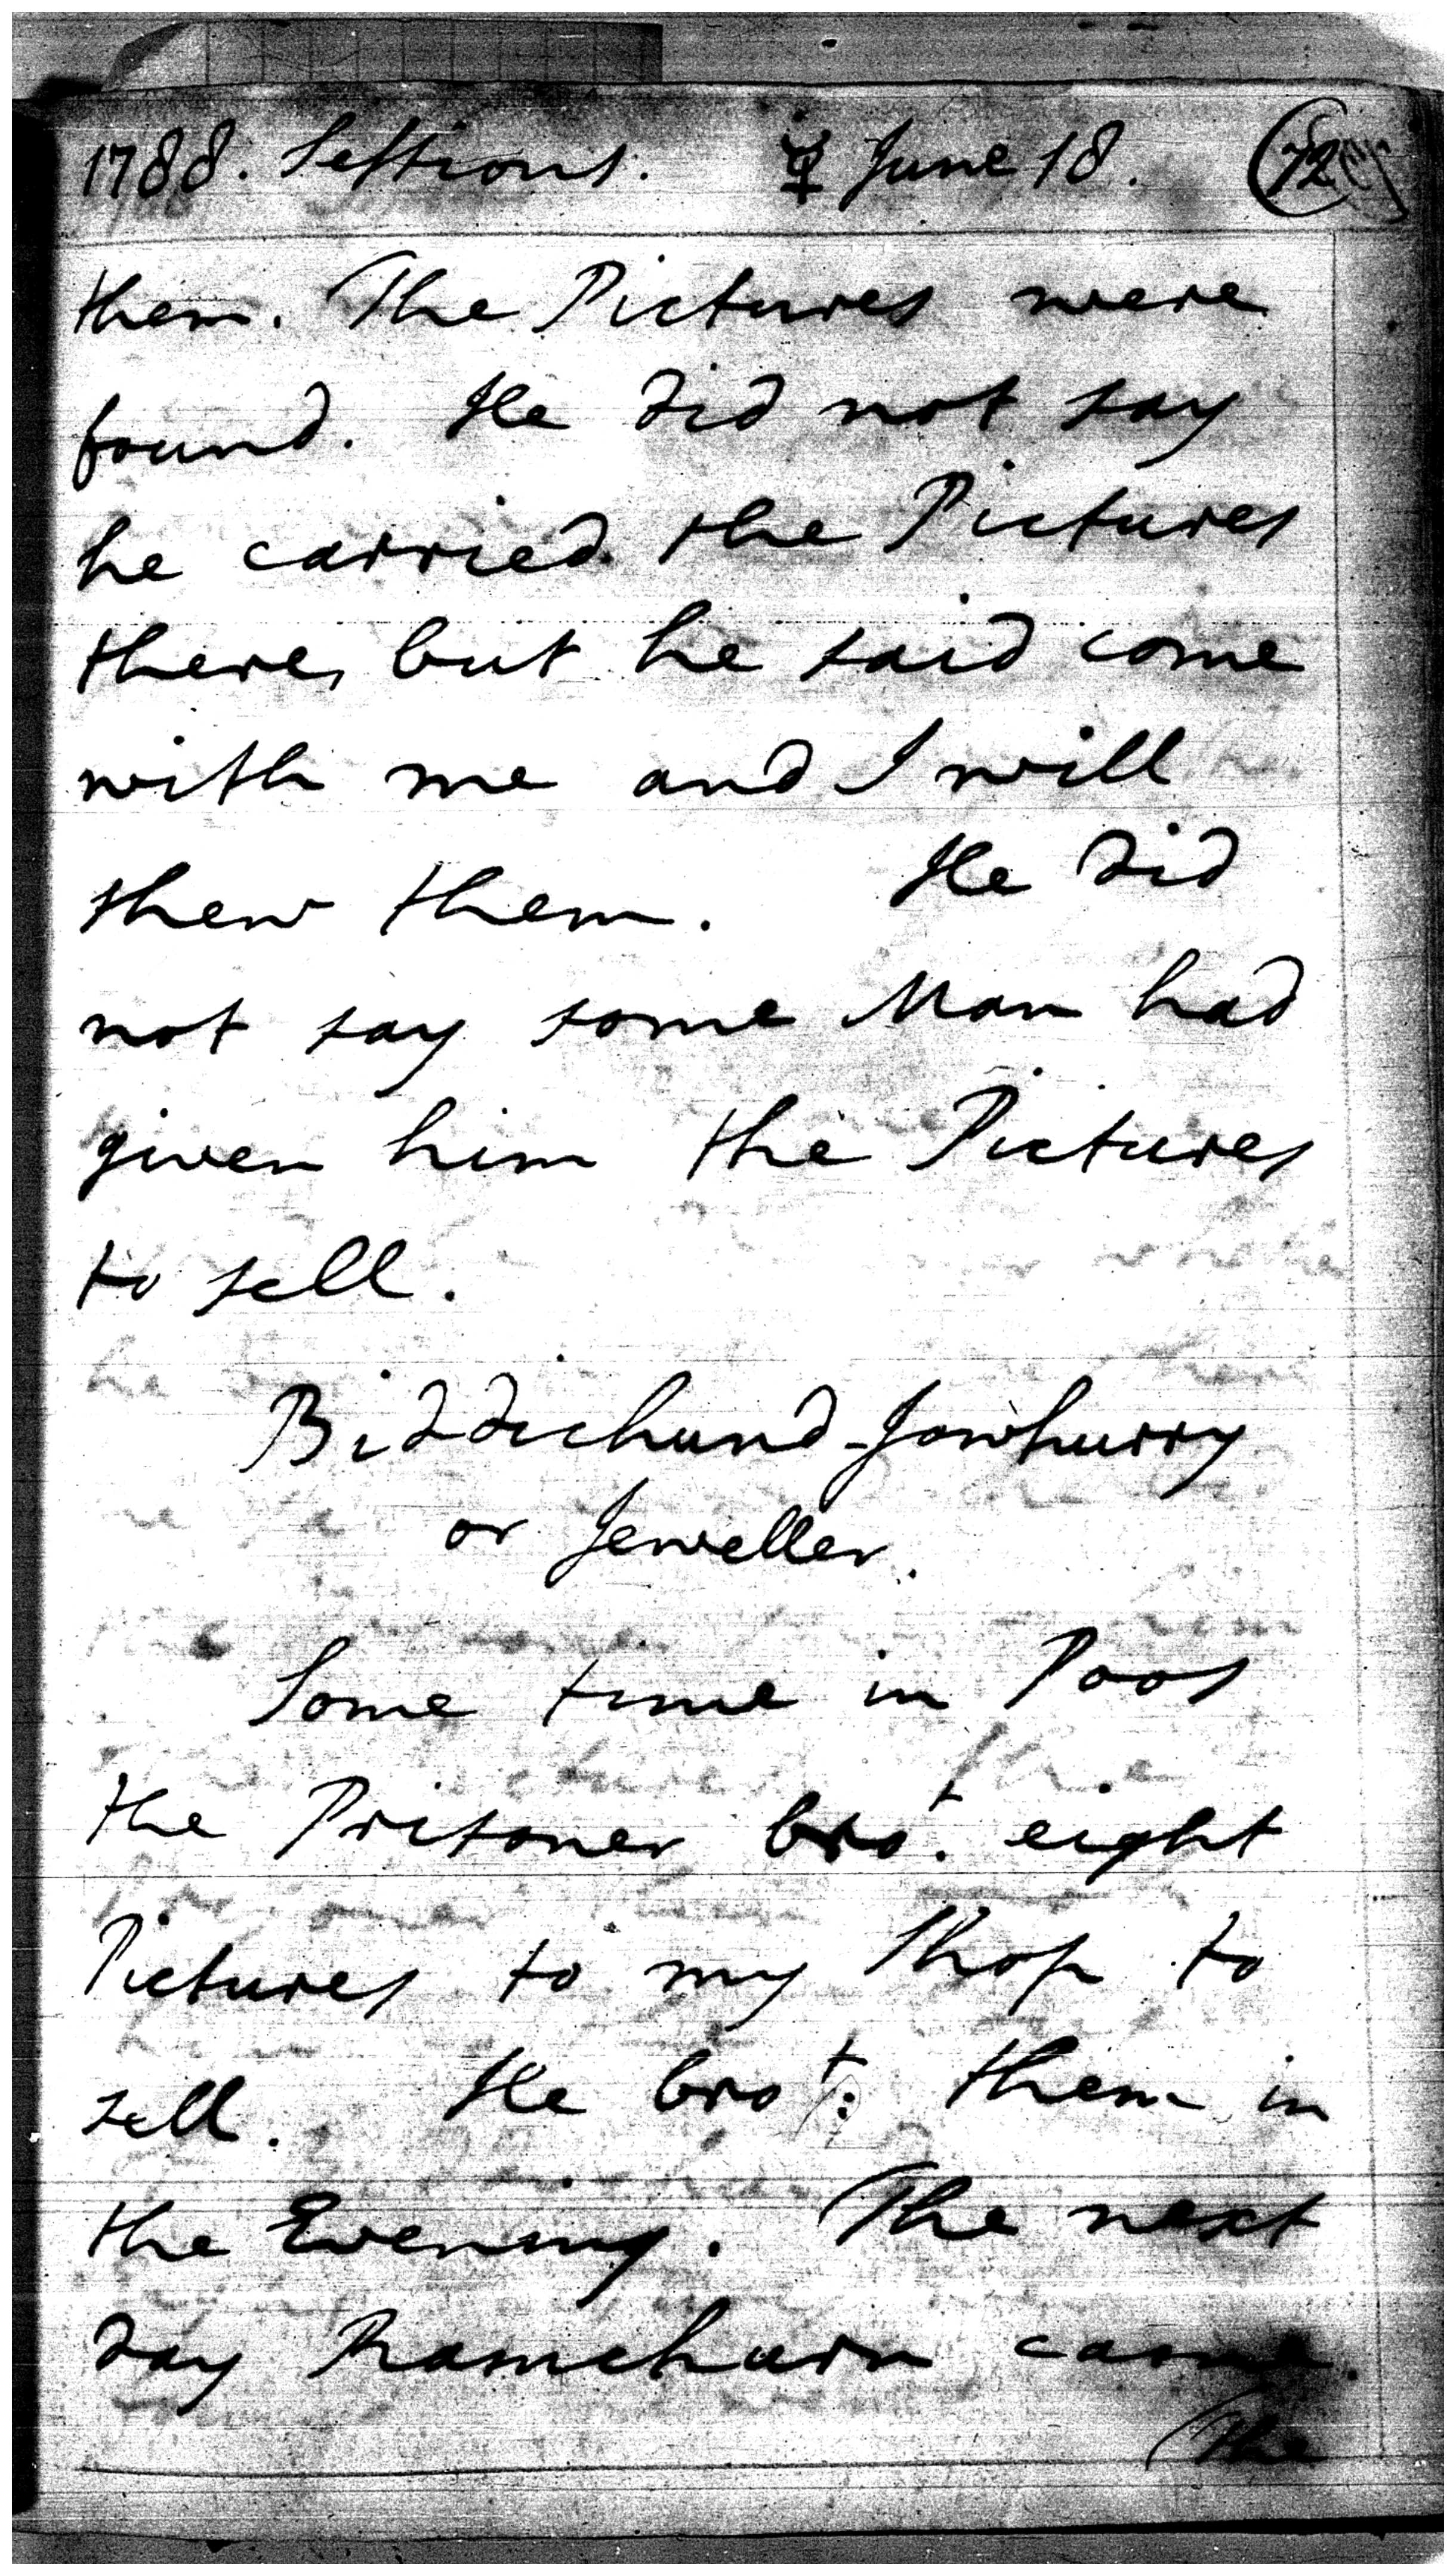 1788. Sessions. ☿ June 18. 72
them. The Pictures were
found. He did not say
he carried the Pictures
there, but he said come
with me and I will
shew them. He did
not say some Man had
given him the Pictures
to sell.
Biddichund Jowhurry
or Jeweller.
Some time in Poos
the Prisoner bro.t eight
Pictures to my Shop to
sell. He bro.t: them in
the Evening. The next
day Ramchurn came.
The